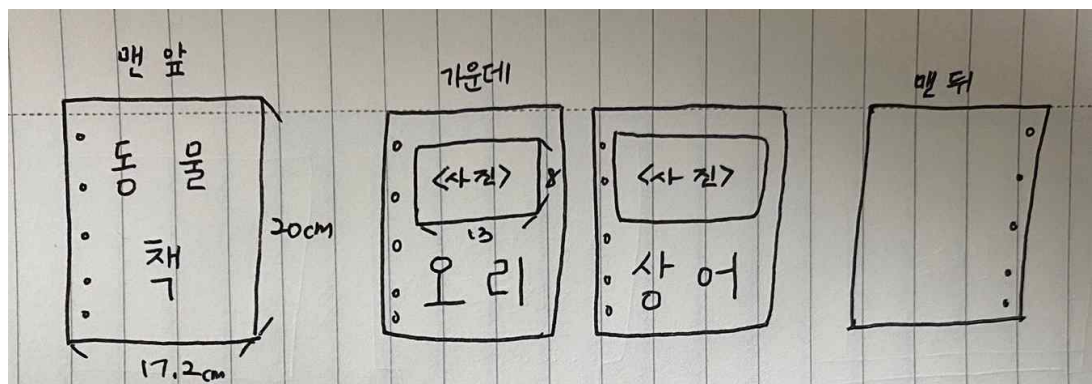 맨 앞
동 물
책
20cm
17.2cm
가운데
<사진>
8
13
오 리
<사진>
상 어
맨 뒤